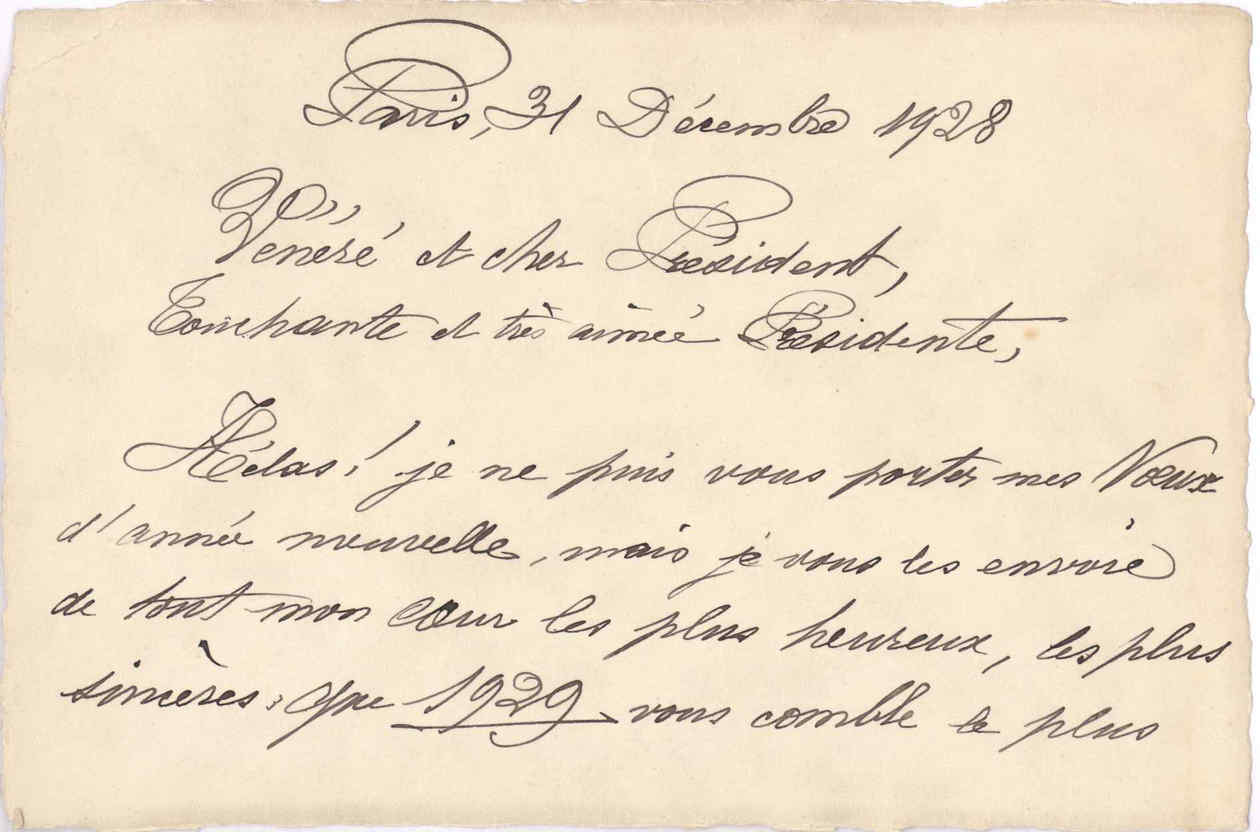 Paris, 31 Décembre 1928
Vénéré et cher Président,
Touchante et très aimée Présidente,
Hélas! je ne puis vous porter mes Vœux
d'année nouvelle, mais je vous les envoie
de tout mon cœur les plus heureux, les plus
sincères. Que 1929 vous comble le plus